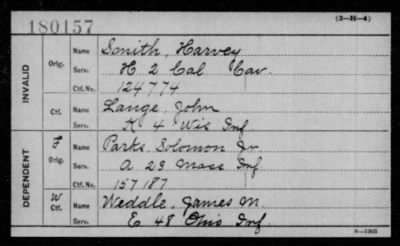 180157
(3-H-4)
INVALID
Orig.
Name Smith, Harvey
Serv. H 2 Cal Cav.
Ctf. No. 124774
Ctf.
Name Lange, John
Serv. K 4 Wis Inf
DEPENDENT
F
Orig.
Name Parks, Solomon Jr.
Serv. A 23 Mass Inf
Ctf. No. 157187
W
Ctf.
Name Weddle, James M.
Serv. E 48 Ohio Inf.